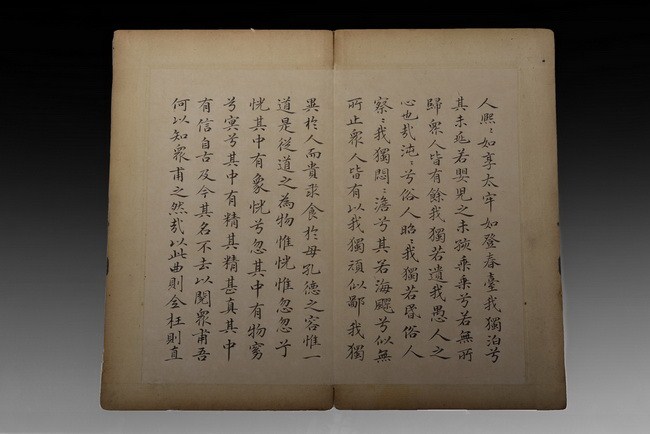 人熙〻如享太牢如登春臺我獨泊兮
其未兆若嬰兒之未孩乘乘兮若無所
歸衆人皆有餘我獨若遺我愚人之
心也哉沌〻兮俗人昭〻我獨若昏俗人
察〻我獨悶〻澹兮其若海飂兮似無
所止衆人皆有以我獨頑似鄙我獨
異於人而貴求食於母孔德之容惟一
道是從道之為物惟恍惟忽忽兮
恍其中有象恍兮忽其中有物窈
兮冥兮其中有精其精甚真其中
有信自古及今其名不去以閱衆甫吾
何以知衆甫之然哉以此曲則全枉則直